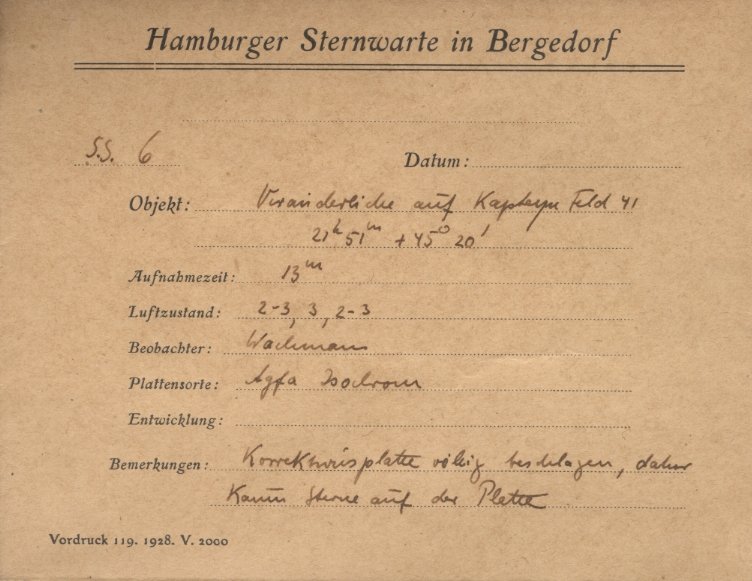 Hamburger Sternwarte in Bergedorf
S.S. 6 Datum:
Objekt: Veränderliche auf Kapteyn Feld 41
21h 51m + 45° 20'
Aufnahmezeit: 13m
Luftzustand: 2-3, 3, 2-3
Beobachter: Wachmann
Plattensorte: Agfa Isochrom
Entwicklung:
Bemerkungen: Korrektionsplatte völlig beschlagen, daher
Kaum Sterne auf der Platte
Vordruck 119. 1928. V. 2000